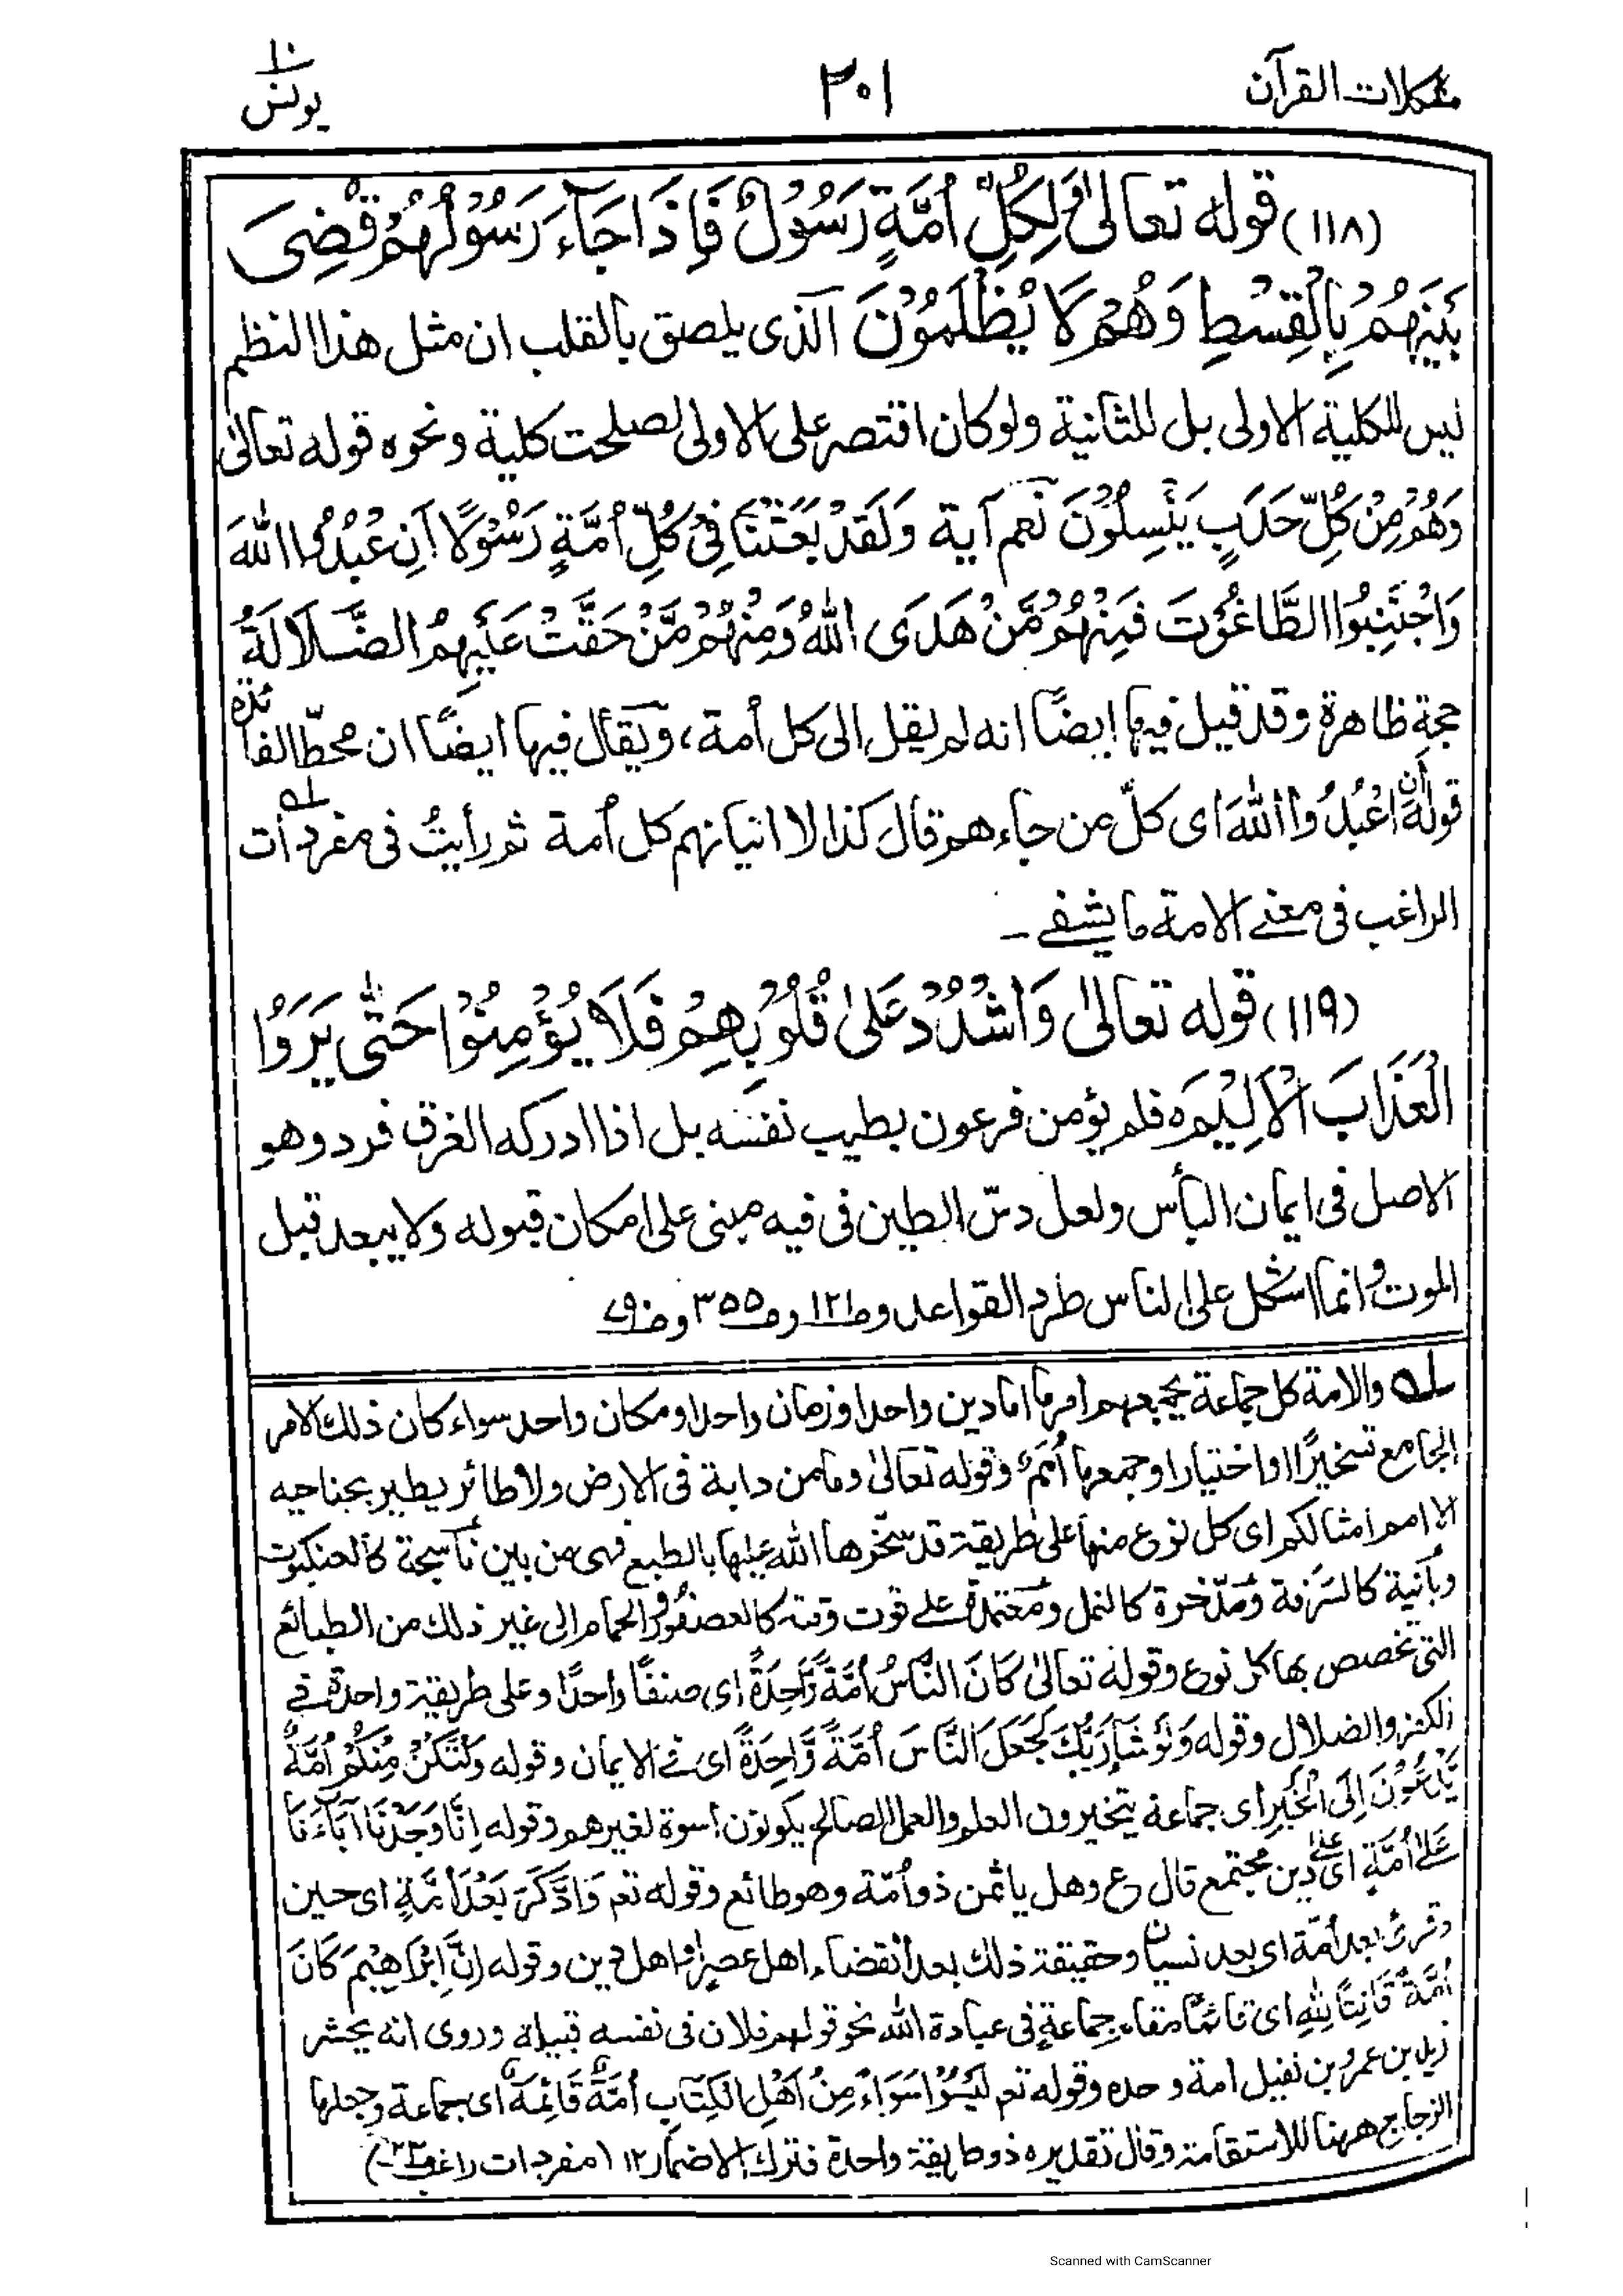 مشكلات القرآن
٢٠١
١٠
يونس
(١١٨) قوله تعالىٰ وَلِكُلِّ اُمَّةٍ رَسُوْلٌ فَاِذَا جَآءَ رَسُوْلُهُمْ قُضِىَ
بَيْنَهُمْ بِالْقِسْطِ وَهُمْ لَا يُظْلَمُوْنَ الذى يلصق بالقلب ان مثل هذا النظم
ليس للكلية الاولى بل للثانية ولو كان اقتصر على الاولى لصلحت كلية ونحوه قوله تعالىٰ
وَهُمْ مِنْ كُلِّ حَدَبٍ يَنْسِلُوْنَ نعم آية وَلَقَدْ بَعَثْنَا فِىْ كُلِّ اُمَّةٍ رَسُوْلًا اَنِ عْبُدُوا اللهَ
وَاجْتَنِبُوا الطَّاغُوْتَ فَمِنْهُمْ مَّنْ هَدَى اللهُ وَمِنْهُمْ مَّنْ حَقَّتْ عَلَيْهِمُ الضَّلَالَةُ
حجة ظاهرة وقد قيل فيها ايضًا انه لم يقل الى كل أمة، ويقال فيها ايضًا ان محطّ الفائدة
قوله أن اعْبُدُوا اللهَ اى كلّ من جاءهم قال كذا لا اتيانهم كل أمة ثم رأيتُ فى مفردات ؎١
الراغب فى معنے الامة ما يشفے ـ
(١١٩) قوله تعالىٰ وَاشْدُدْ عَلىٰ قُلُوْبِهِمْ فَلَا يُؤْمِنُوْا حَتّٰى يَرَوُا
الْعَذَابَ الْاَلِيْمَ ه فلم يؤمن فرعون بطيب نفسه بل اذا ادركه الغرق فرد وهو
الاصل فى ايمان البأس ولعل دسّ الطين فى فيه مبنى على امكان قبوله ولا يبعد قبل
الموت وانما اشكل على الناس طرد القواعد وصـ١٢١ وصـ٣٥٥ وصـ
؎١ والامة كل جماعة يجمعهم امر ما اما دين واحد او زمان واحد او مكان واحد سواء كان ذلك الامر
الجامع تسخيرًا او اختيارا وجمعها أُمَمٌ وقوله تعالىٰ وما من دابة فى الارض ولا طائر يطير بجناحيه
الا امم امثالكم اى كل نوع منها على طريقة قد سخّرها الله عليها بالطبع فهى من بين ناسجة كالعنكبوت
وبانية كالسُرفة ومدّخرة كالنمل ومعتمدة علے قوت وقته كالعصفور والحمام الى غير ذلك من الطبائع
التى تخصص بها كل نوع وقوله تعالىٰ كَانَ النَّاسُ اُمَّةً وَّاحِدَةً اى صنفًا واحدًا وعلى طريقة واحدة فے
الكفر والضلال وقوله وَلَوْ شَآءَ رَبُّكَ لَجَعَلَ النَّاسَ اُمَّةً وَّاحِدَةً اى فے الايمان وقوله وَلْتَكُنْ مِنْكُمْ اُمَّةٌ
يَّدْعُوْنَ اِلَى الْخَيْرِ اى جماعة يتخيرون العلم والعمل الصالح يكونون أسوة لغيرهم وقوله اِنَّا وَجَدْنَا آبَاءَنَا
عَلىٰ اُمَّةٍ اى علىٰ دين مجتمع قال ع وهل يأثمن ذو اُمّة وهو طائع وقوله تعم وَادَّكَرَ بَعْدَ اُمَّةٍ اى حين
وقرئ بعد أمَة اى بعد نسيان وحقيقة ذلك بعد انقضاء اهل عصر او اهل دين وقوله اِنَّ اِبْرَاهِيْمَ كَانَ
اُمَّةً قَانِتًا لِلّٰهِ اى قائمًا مقام جماعة فى عبادة الله نحو قولهم فلان فى نفسه قبيلة وروى انه يحشر
زيد بن عمرو بن نفيل امة وحده وقوله تعم لَيْسُوْا سَوَاءً مِنْ اَهْلِ الْكِتَابِ اُمَّةٌ قَائِمَةٌ اى جماعة وجعلها
الزجاج ههنا للاستقامة وقال تقديره ذو طريقة واحدة فترك الاضمار ١٢ (مفردات راغب صـ٢٣)
Scanned with CamScanner